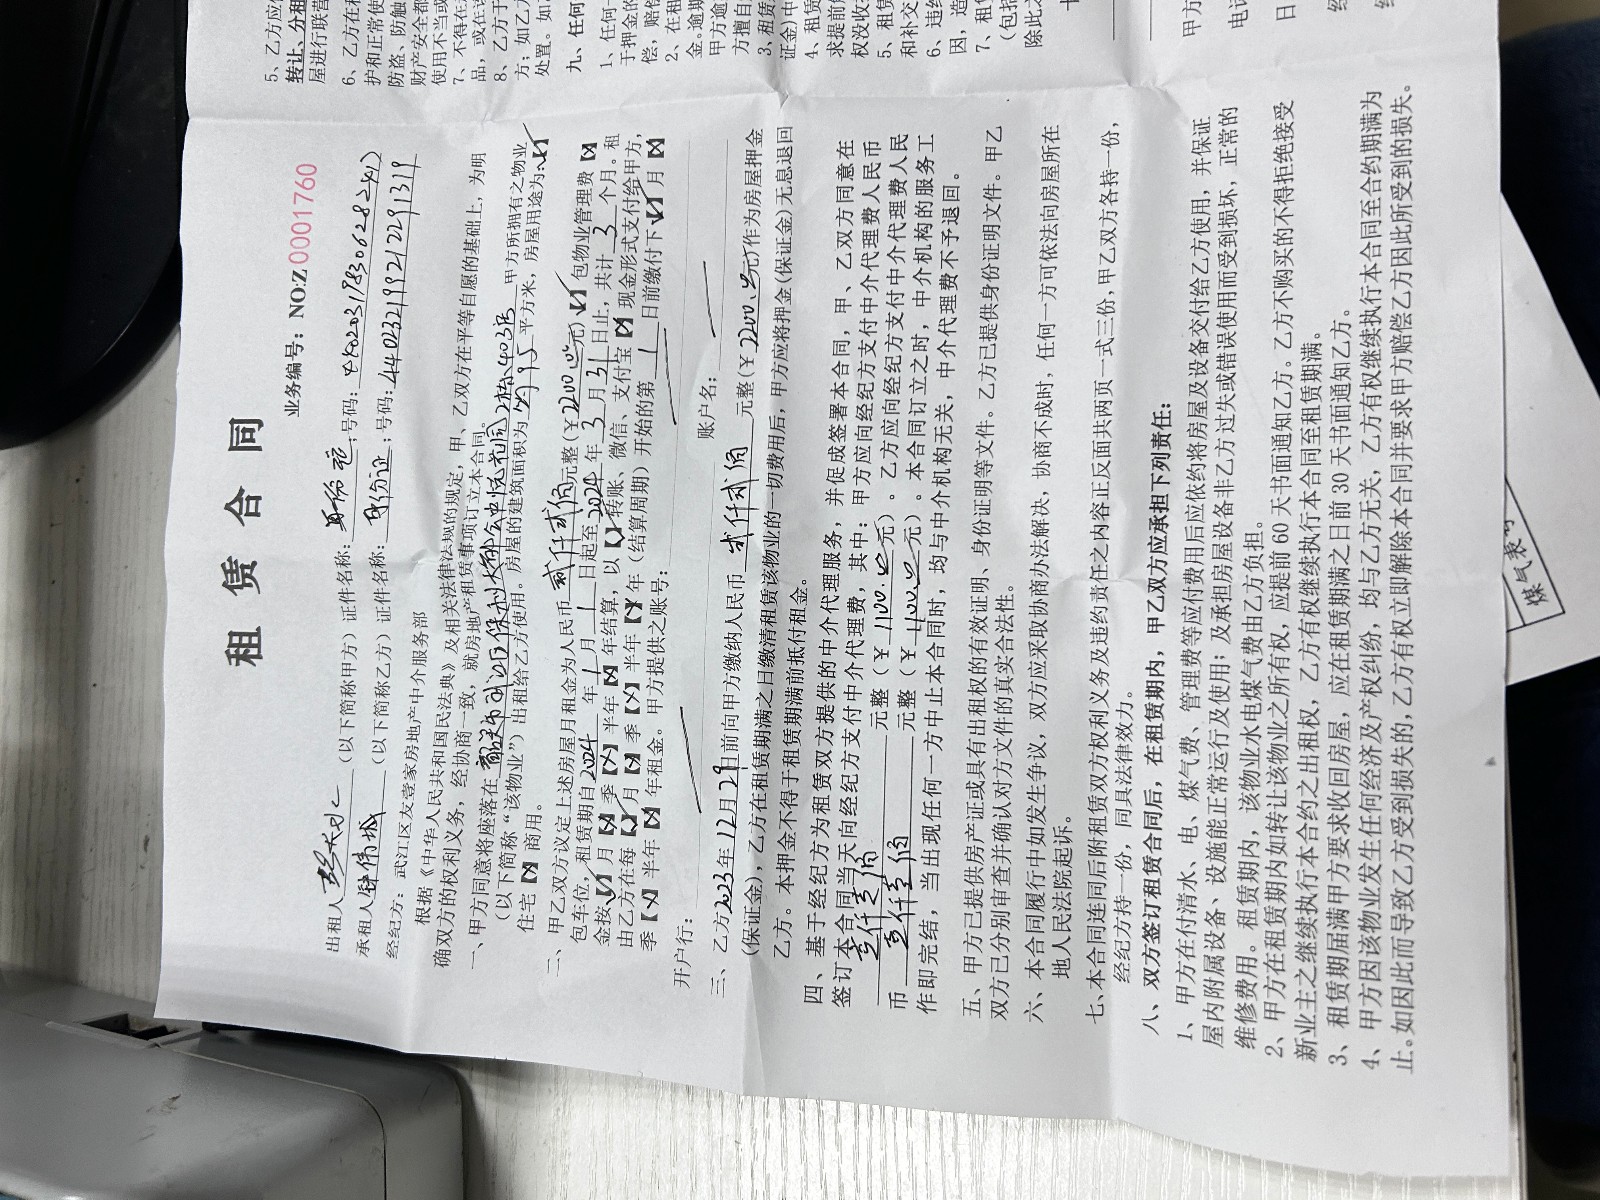 租 赁 合 同
业务编号：NO:Z 0001760
出租人 （以下简称甲方）证件名称：身份证；号码：
承租人 伟城（以下简称乙方）证件名称：身份证；号码：
经纪方：武江区友壹家房地产中介服务部
根据《中华人民共和国民法典》及相关法律法规的规定，甲、乙双方在平等自愿的基础上，为明
确双方的权利义务，经协商一致，就房地产租赁事项订立本合同。
一、甲方同意将座落在 韶关市武江区保利大都会中悦花园2栋403房 甲方所拥有之物业
（以下简称“该物业”）出租给乙方使用。房屋的建筑面积为 平方米，房屋用途为：【✓】
住宅【×】商用。
二、甲乙双方议定上述房屋月租金为人民币 贰仟贰佰 元整（￥2200.00元）【✓】包物业管理费【×】
包车位，租赁期自2024年1月1日起至2024年3月31日止，共计 3 个月。租
金按【✓】月【×】季【×】半年【×】年结算，以【✓】转账、微信、支付宝【×】现金形式支付给甲方，
由乙方在每【✓】月【×】季【×】半年【×】年（结算周期）开始的第 1 日前缴付下【✓】月【×】
季【×】半年【×】年租金。甲方提供之账号：
开户行： 账户名：
三、乙方2023年12月29日前向甲方缴纳人民币 贰仟贰佰 元整（￥2200.00元）作为房屋押金
（保证金），乙方在租赁期满之日缴清租赁该物业的一切费用后，甲方应将押金（保证金）无息退回
乙方。本押金不得于租赁期满前抵付租金。
四、基于经纪方为租赁双方提供的中介代理服务，并促成签署本合同，甲、乙双方同意在
签订本合同当天向经纪方支付中介代理费，其中：甲方应向经纪方支付中介代理费人民币
壹仟壹佰 元整（￥1100.00元）。乙方应向经纪方支付中介代理费人民
币 壹佰 元整（￥ 元）。本合同订立之时，中介机构的服务工
作即完结，当出现任何一方中止本合同时，均与中介机构无关，中介代理费不予退回。
五、甲方已提供房产证或具有出租权的有效证明、身份证明等文件。乙方已提供身份证明文件。甲乙
双方已分别审查并确认对方文件的真实合法性。
六、本合同履行中如发生争议，双方应采取协商办法解决，协商不成时，任何一方可依法向房屋所在
地人民法院起诉。
七、本合同连同后附租赁双方权利义务及违约责任之内容正反面共两页一式三份，甲乙双方各持一份，
经纪方持一份，同具法律效力。
八、双方签订租赁合同后，在租赁期内，甲乙双方应承担下列责任：
1、甲方在付清水、电、煤气费、管理费等应付费用后应依约将房屋及设备交付给乙方使用，并保证
屋内附属设备、设施能正常运行及使用；及承担房屋设备非乙方过失或错误使用而受到损坏，正常的
维修费用。租赁期内，该物业水电煤气费由乙方负担。
2、甲方在租赁期内如转让该物业之所有权，应提前 60 天书面通知乙方。乙方不购买的不得拒绝接受
新业主之继续执行本合约之出租权，乙方有权继续执行本合同至租赁期满。
3、租赁期届满甲方要求收回房屋，应在租赁期满之日前 30 天书面通知乙方。
4、甲方因该物业发生任何经济及产权纠纷，均与乙方无关，乙方有权继续执行本合同至合约期满为
止。如因此而导致乙方受到损失的，乙方有权立即解除本合同并要求甲方赔偿乙方因此所受到的损失。
5、乙方应
转让、分租
屋进行联营
6、乙方在租
护和正常使
防盗、防触
财产安全都
使用不当或
7、不得在
品，或在该
8、乙方于
方；如乙方
处置。如
九、任何
1、任何一
于押金的
偿，赔偿
2、在租
金。逾期
甲方逾
方擅自
3、租赁
证金）中
4、租赁
求提前
权没收
5、租赁
和补交
6、违约
因，造
7、租
（包括
除此之
甲方
电话
日
煤气表